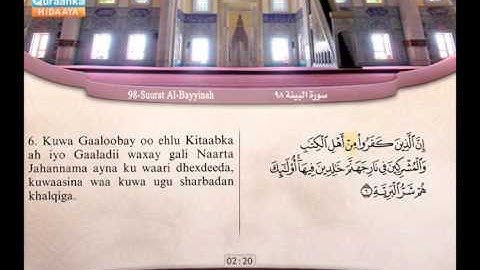 Quraanka
HIDAAYA
98-Suurat Al-Bayyinah
سورة البينة ٩٨
6. Kuwa Gaaloobay oo ehlu Kitaabka
ah iyo Gaaladii waxay gali Naarta
Jahannama ayna ku waari dhexdeeda,
kuwaasina waa kuwa ugu sharbadan
khalqiga.
إِنَّ ٱلَّذِينَ كَفَرُوا۟ مِنْ أَهْلِ ٱلْكِتَٰبِ
وَٱلْمُشْرِكِينَ فِى نَارِ جَهَنَّمَ خَٰلِدِينَ فِيهَآ أُو۟لَٰٓئِكَ
هُمْ شَرُّ ٱلْبَرِيَّةِ ٦
02:20